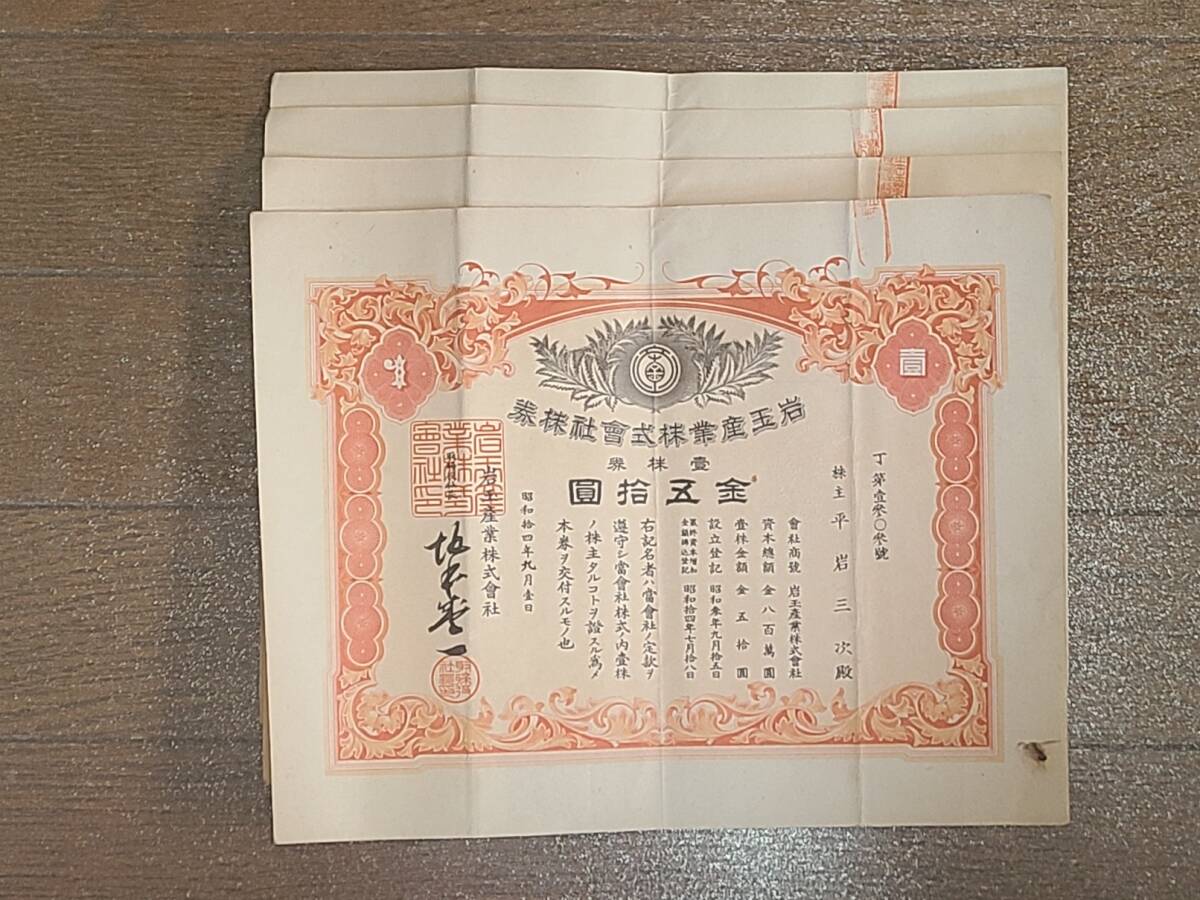 岩玉産業株式會社株券
壹株券
金五拾圓
丁第壹参〇参號
株主 平岩三次殿
會社商號 岩玉産業株式會社
資本總額 金八百萬圓
壹株金額 金五拾圓
設立登記 昭和参年九月拾五日
最終資本増加金額拂込登記 昭和拾四年七月拾八日
右記名者ハ當會社ノ定款ヲ
遵守シ當會社株式ノ内壹株
ノ株主タルコトヲ證スル爲メ
本券ヲ交付スルモノ也
昭和拾四年九月壹日
岩玉産業株式會社
取締役社長
壹